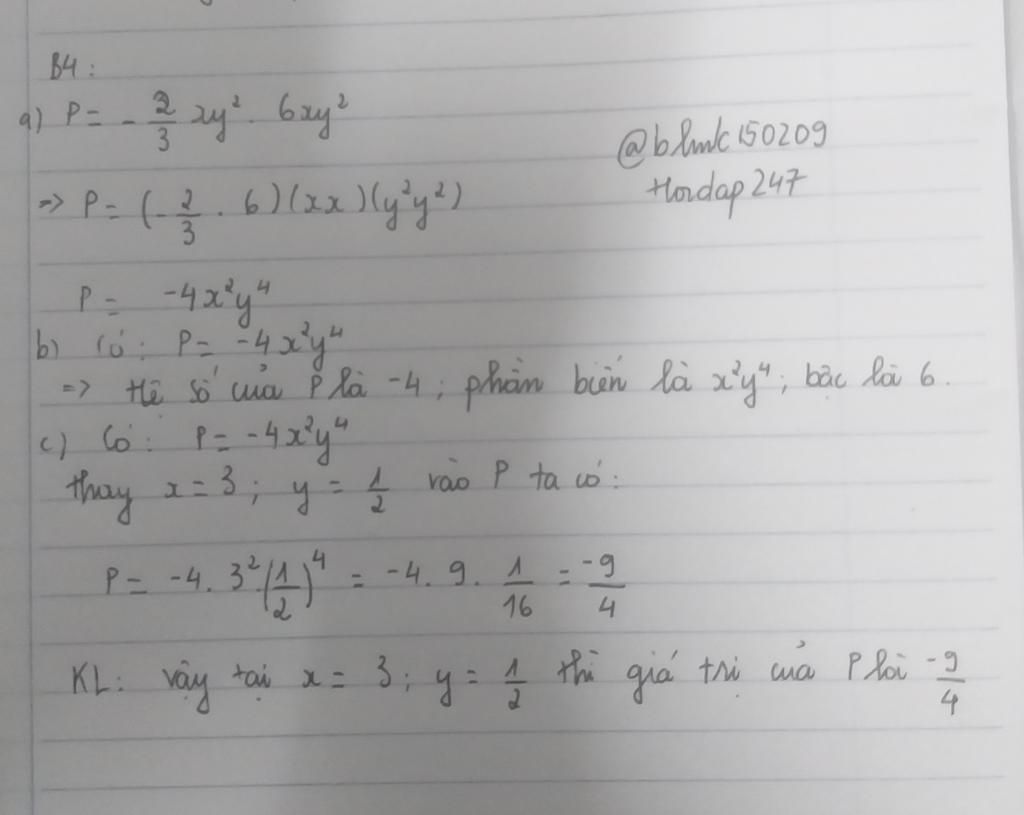 B4:
a) P = -2/3 xy² . 6xy²
@blmk150209
Hoidap247
=> P = (-2/3 . 6)(xx)(y²y²)
P = -4x²y⁴
b) Có: P = -4x²y⁴
=> Hệ số của P là -4; phần biến là x²y⁴; bậc là 6.
c) Có: P = -4x²y⁴
thay x = 3; y = 1/2 vào P ta có:
P = -4. 3² (1/2)⁴ = -4. 9. 1/16 = -9/4
KL: vậy tại x = 3; y = 1/2 thì giá trị của P là -9/4